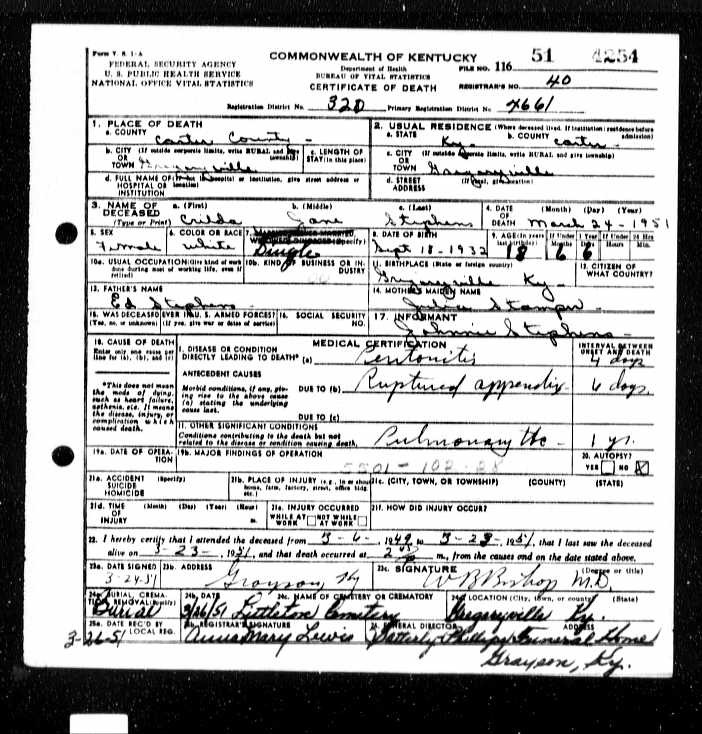 Form V. S. 1-A
FEDERAL SECURITY AGENCY
U. S. PUBLIC HEALTH SERVICE
NATIONAL OFFICE VITAL STATISTICS
COMMONWEALTH OF KENTUCKY
Department of Health
BUREAU OF VITAL STATISTICS
CERTIFICATE OF DEATH
FILE NO. 116 51 4254
REGISTRAR'S NO. 40
Registration District No. 320 Primary Registration District No. 4661
1. PLACE OF DEATH
a. COUNTY Carter County
b. CITY (If outside corporate limits, write RURAL and give township)
OR
TOWN Gregoryville
c. LENGTH OF STAY (in this place)
d. FULL NAME OF (If not in hospital or institution, give street address or location)
HOSPITAL OR
INSTITUTION
2. USUAL RESIDENCE (Where deceased lived. If institution: residence before admission)
a. STATE Ky. b. COUNTY Carter
c. CITY (If outside corporate limits, write RURAL and give township)
OR
TOWN Gregoryville
d. STREET (If rural, give location)
ADDRESS
3. NAME OF DECEASED (Type or Print)
a. (First) b. (Middle) c. (Last)
Crilda Jane Stephens
4. DATE OF DEATH (Month) (Day) (Year)
March 24 - 1951
5. SEX Female
6. COLOR OR RACE White
7. Single
8. DATE OF BIRTH Sept 18 - 1932
9. AGE (In years last birthday) 18 If Under 1 Year 6 6 If Under 24 Hrs Hours Min.
10a. USUAL OCCUPATION (Give kind of work done during most of working life, even if retired)
10b. KIND OF BUSINESS OR INDUSTRY
11. BIRTHPLACE (State or foreign country) Gregoryville Ky
12. CITIZEN OF WHAT COUNTRY?
13. FATHER'S NAME Ed Stephens
14. MOTHER'S MAIDEN NAME Julia Stamper
15. WAS DECEASED EVER IN U. S. ARMED FORCES? (Yes, no, or unknown) (If yes, give war or dates of service)
16. SOCIAL SECURITY NO.
17. INFORMANT Johnnie Stephens
18. CAUSE OF DEATH
Enter only one cause per line for (a), (b), and (c)
*This does not mean the mode of dying, such as heart failure, asthenia, etc. It means the disease, injury, or complication which caused death.
MEDICAL CERTIFICATION
INTERVAL BETWEEN ONSET AND DEATH
I. DISEASE OR CONDITION DIRECTLY LEADING TO DEATH* (a) Peritonitis 4 days
ANTECEDENT CAUSES
Morbid conditions, if any, giving rise to the above cause (a) stating the underlying cause last.
DUE TO (b) Ruptured appendix 6 days
DUE TO (c)
II. OTHER SIGNIFICANT CONDITIONS
Conditions contributing to the death but not related to the disease or condition causing death.
Pulmonary tbc - 1 yr.
19a. DATE OF OPERATION
19b. MAJOR FINDINGS OF OPERATION
5501-102-28
20. AUTOPSY? YES NO X
21a. ACCIDENT SUICIDE HOMICIDE (Specify)
21b. PLACE OF INJURY (e.g., in or about home, farm, factory, street, office bldg., etc.)
21c. (CITY, TOWN, OR TOWNSHIP) (COUNTY) (STATE)
21d. TIME OF INJURY (Month) (Day) (Year) (Hour) m.
21e. INJURY OCCURRED
WHILE AT WORK NOT WHILE AT WORK
21f. HOW DID INJURY OCCUR?
22. I hereby certify that I attended the deceased from 3-6-, 1949, to 3-23-, 1951, that I last saw the deceased
alive on 3-23-, 1951, and that death occurred at m., from the causes and on the date stated above.
23a. DATE SIGNED 3-24-51
23b. ADDRESS Grayson Ky
23c. SIGNATURE W B Bishop M.D. (Degree or title)
24a. BURIAL, CREMATION, REMOVAL (Specify) Burial
24b. DATE 3/26/51
24c. NAME OF CEMETERY OR CREMATORY Littleton Cemetery
24d. LOCATION (City, town, or county) (State) Gregoryville Ky.
25a. DATE REC'D BY LOCAL REG. 3-26-51
25b. REGISTRAR'S SIGNATURE Anna Mary Lewis
26. FUNERAL DIRECTOR ADDRESS
Funeral Home
Grayson, Ky.